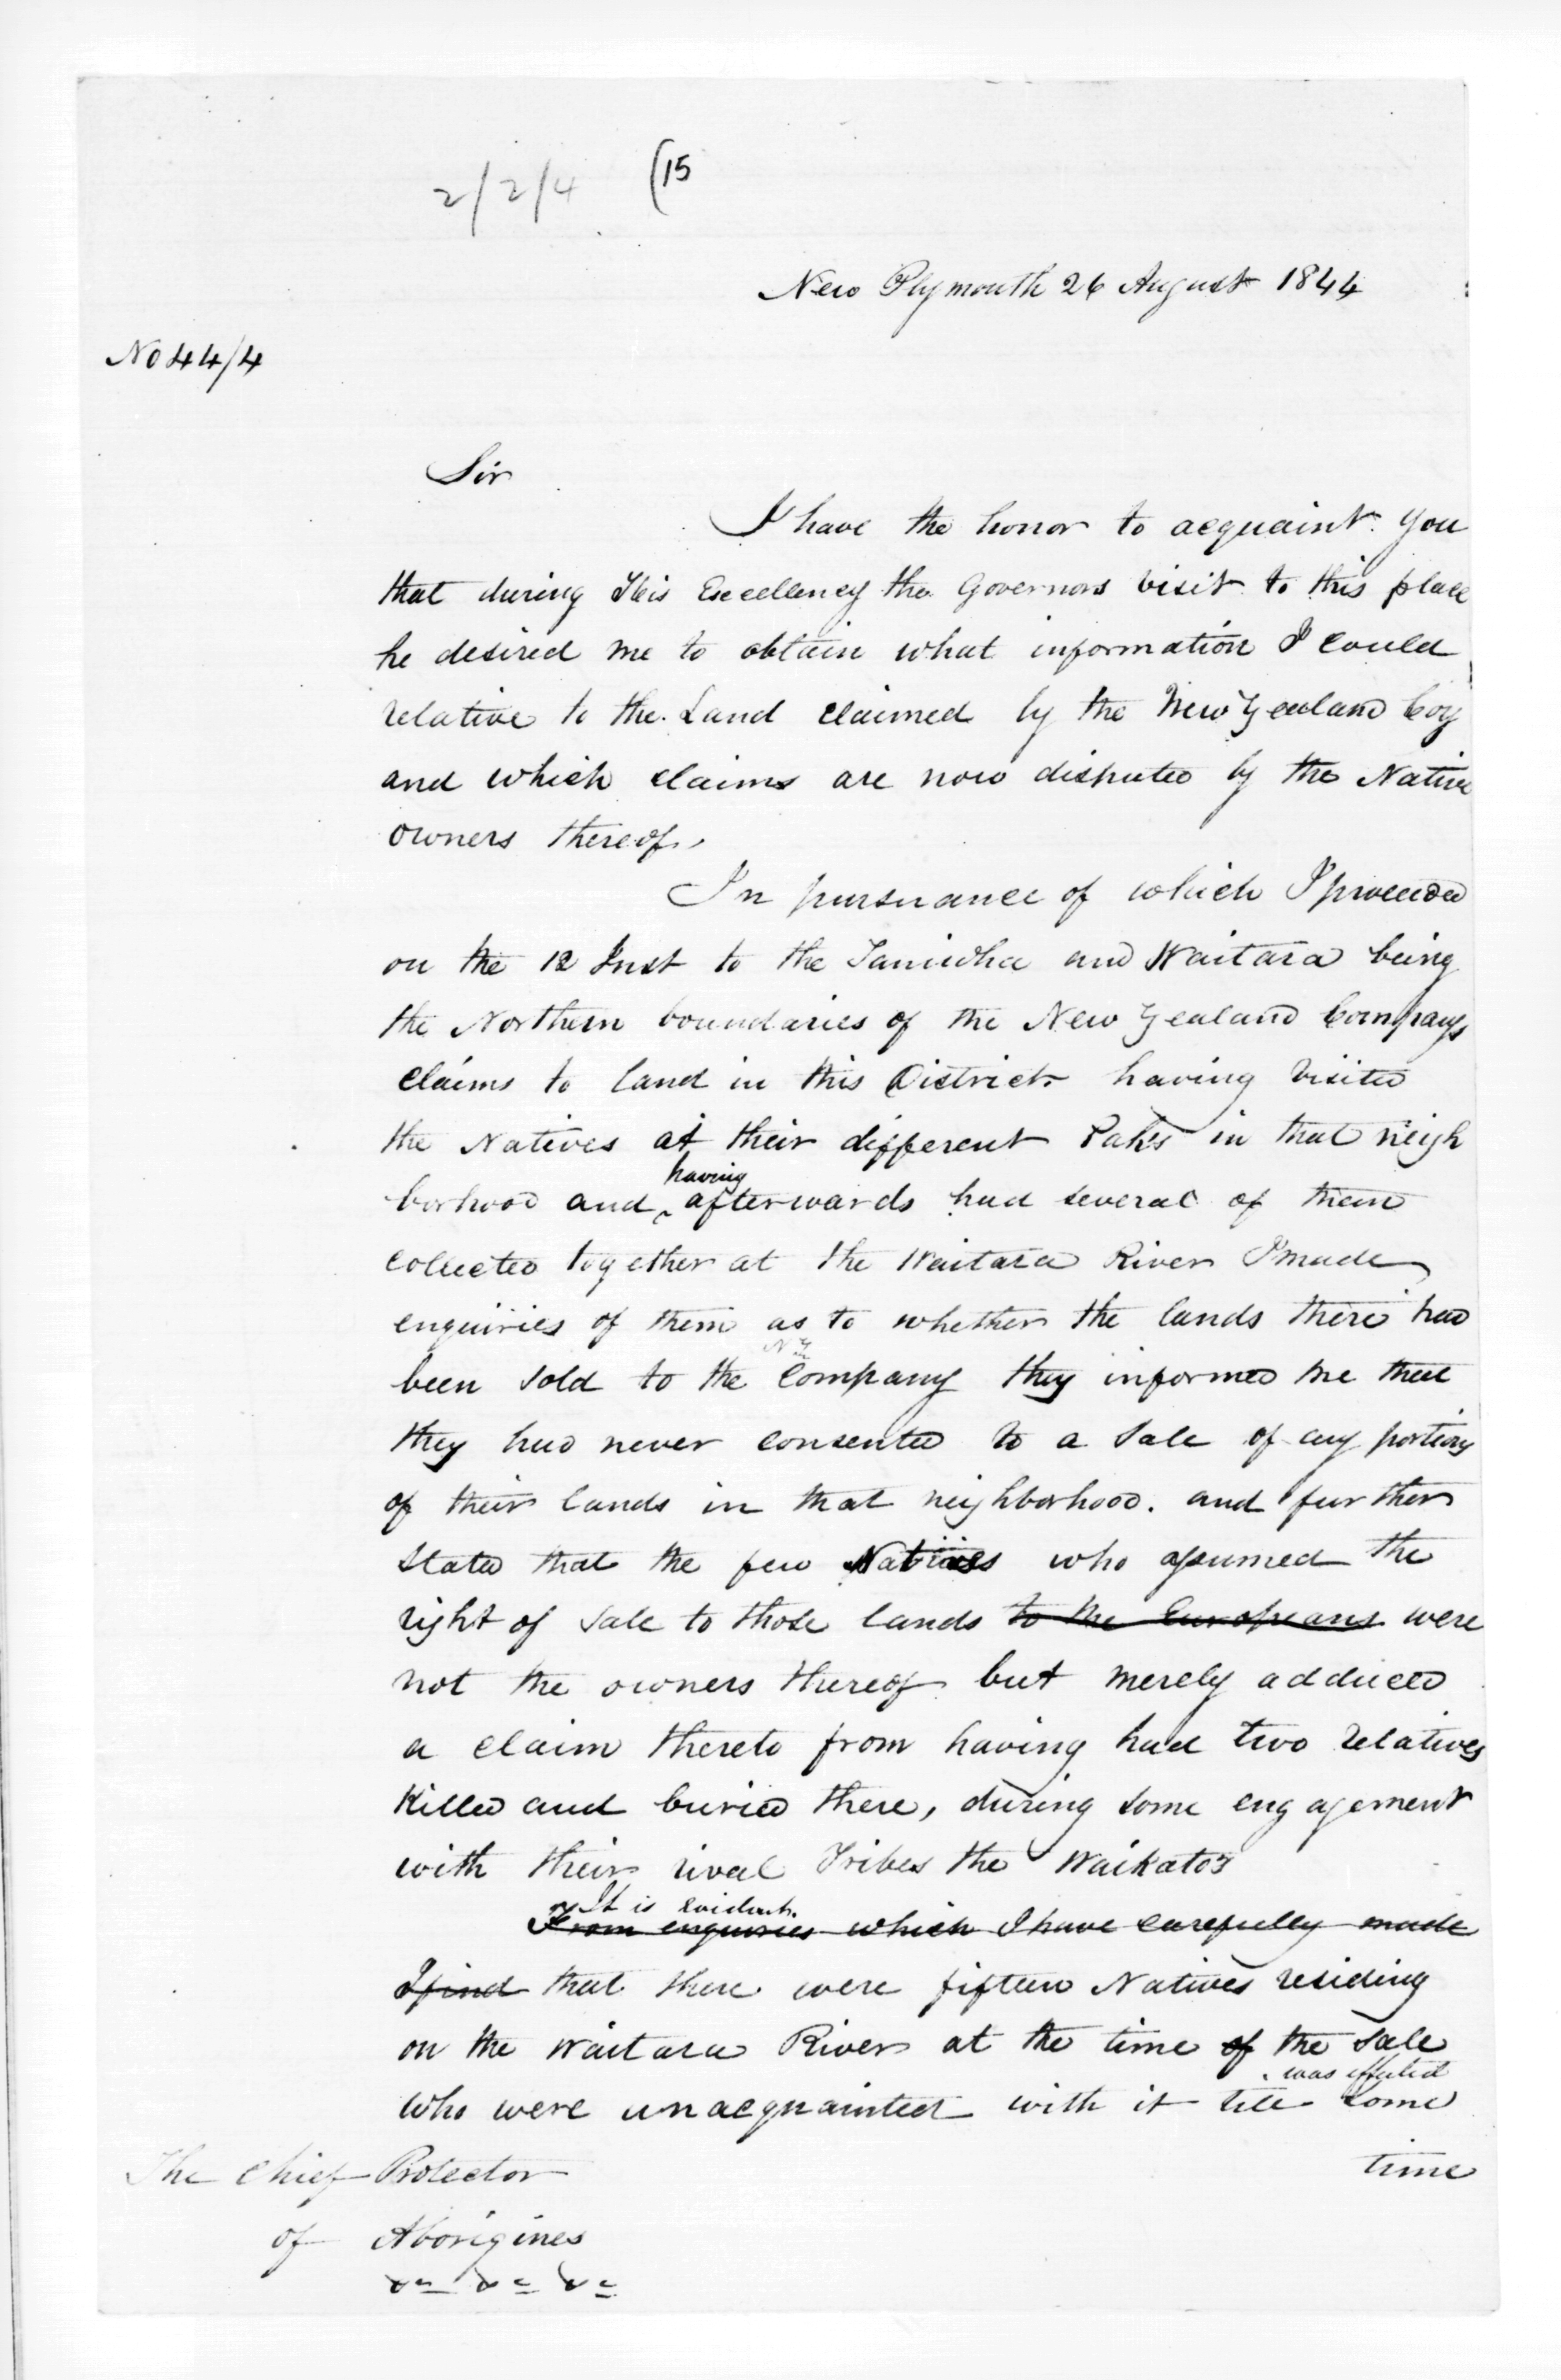 2/2/4 (15
New Plymouth 26 August 1844
No 44/4
Sir
I have the honor to acquaint you
that during His Excellency the Governors visit to this place
he desired me to obtain what information I could
relative to the Land claimed by the New Zealand Coy
and which claims are now disputed by the Native
owners thereof.
In pursuance of which I proceeded
on the 12 Inst to the Taniwha and Waitara being
the Northern boundaries of the New Zealand Companys
claims to land in this District having visited
the Natives at their different Pahs in that neigh
having
borhood and ‸ afterwards had several of them
collected together at the Waitara River I made
enquiries of them as to whether the lands there had
NZ
been sold to the Company they informed me that
they had never consented to a sale of any portion
of their lands in that neighborhood. and further
stated that the few Natives who assumed the
right of sale to those lands to the Europeans were
not the owners thereof but merely adduced
a claim thereto from having had two relatives
killed and buried there, during some engagement
with their rival Tribes the Waikatos
It is evident
From enquiries which I have carefully made
I find that there were fifteen Natives residing
on the Waitara River at the time of the sale
was effected
who were unacquainted with it till some
time
The Chief Protector
of Aborigines
&c &c &c